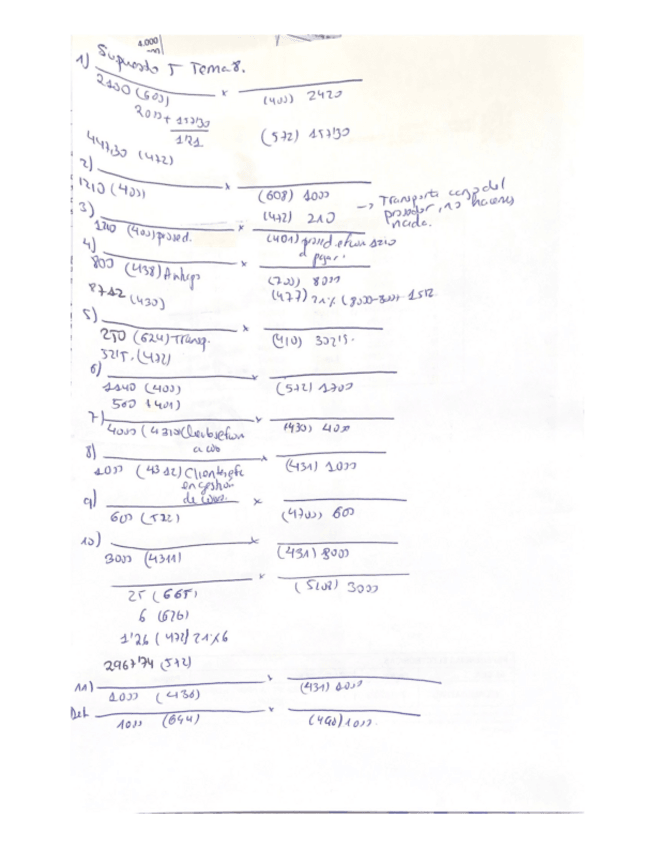 4.000
Supuesto 5 Tema 8.
1)
2100 (600) x (400) 2420
2000 + 157'30
1'21
(572) 157'30
447,30 (472)
2)
1210 (400) x (608) 1000
(472) 210 -> Transporte cargo del
proveedor, no hacemos
nada.
3)
(400) proveed. x (401) proveed efectos
a pagar.
4)
800 (438) Anticipo x (700) 8000
8712 (430) (477) 21% (8000-800) 1512
5)
250 (624) Transp. x (410) 302'5.
52'5. (472)
6)
(400) x (572) 1700
500 (401)
7)
4000 (4310) x (430) 4000
8)
1000 (4312) Clientes efe x (431) 1000
en gestión
de cobro.
9)
600 (572) x (4700) 600
10)
3000 (4311) x (431) 3000
x (5208) 3000
25 (665)
6 (626)
1'26 (472) 21% 6
2967'74 (572)
11)
1000 (436) x (431) 1000
Det
1000 (694) x (490) 1000.